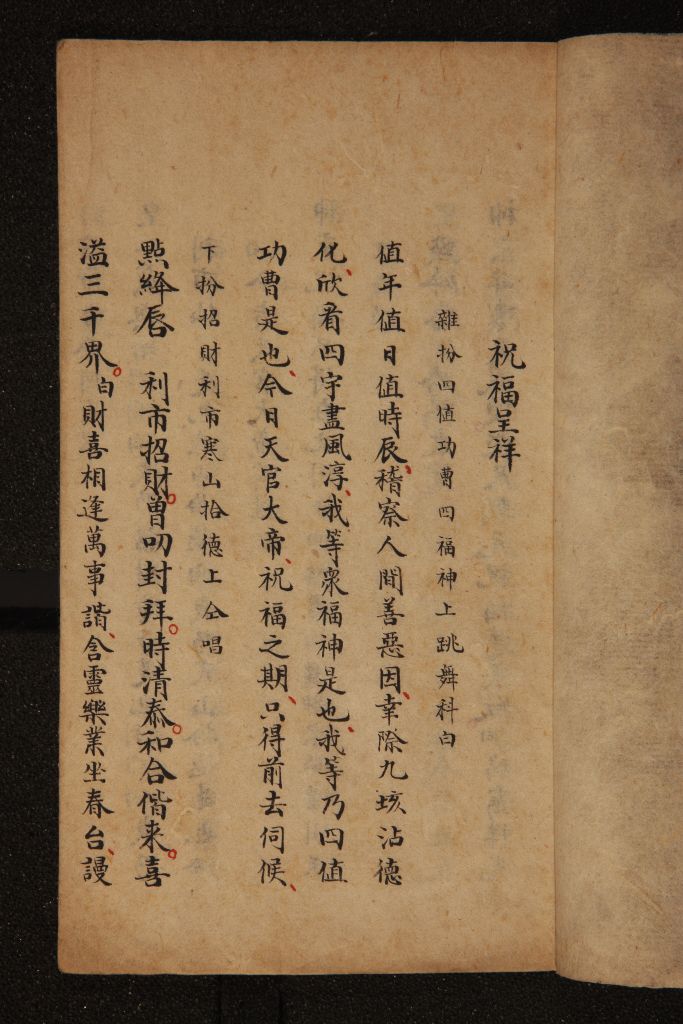 祝福呈祥
雜扮四值功曹四福神上跳舞科白
值年值日值時辰、稽察人間善惡因、幸際九垓沾德
化、欣看四宇盡風淳、我等衆福神是也、我等乃四值
功曹是也、今日天官大帝、祝福之期、只得前去伺候、
下扮招財利市寒山拾德上仝唱
點絳唇　利市招財。曾叨封拜。時清泰。和合偕来。喜
溢三千界。白財喜相逢萬事諧、含靈樂業坐春台、謾